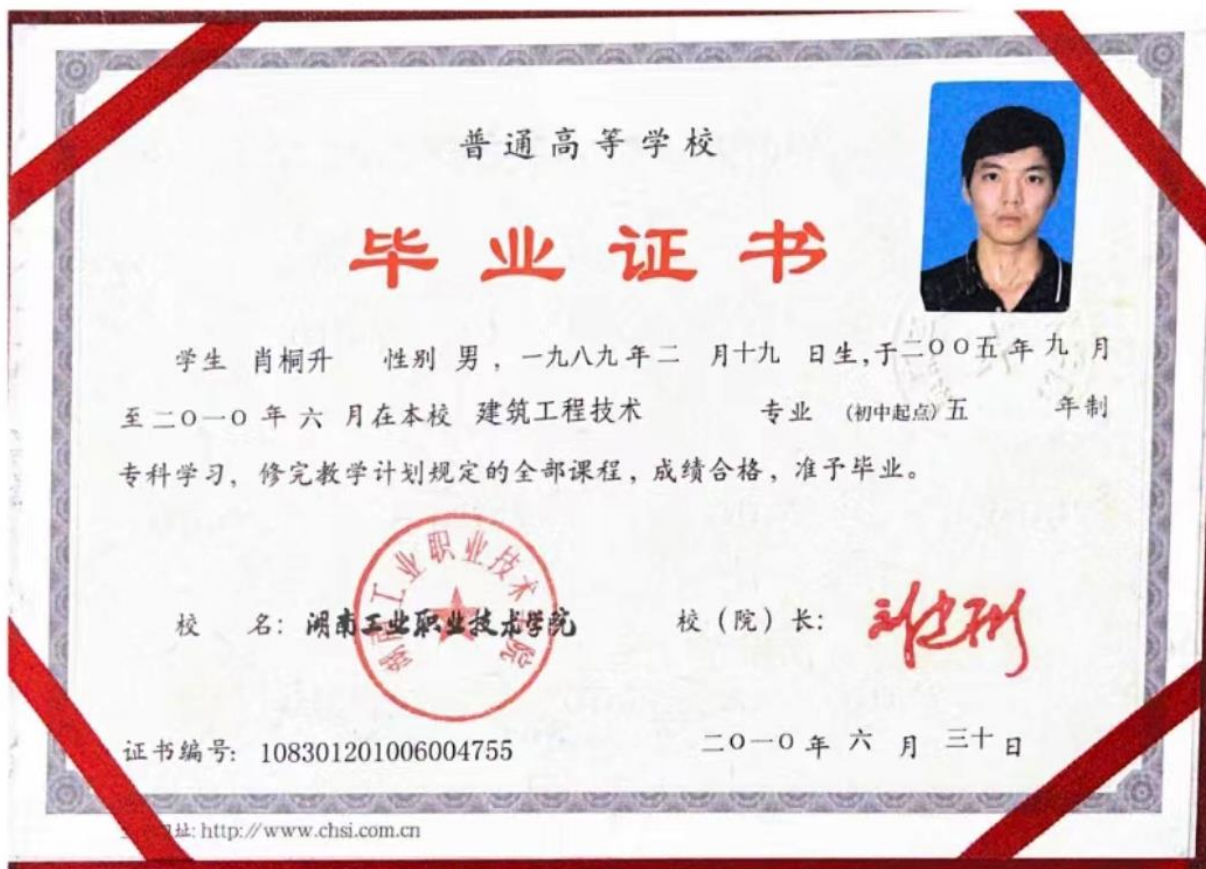 普通高等学校
毕业证书
学生 肖桐升 性别 男，一九八九年二 月十九 日生,于二〇〇五年九月
至二〇一〇年六 月在本校 建筑工程技术 专业 (初中起点)五 年制
专科学习，修完教学计划规定的全部课程，成绩合格，准予毕业。
湖南工业职业技术学院
校 名：湖南工业职业技术学院 校（院）长：
证书编号：108301201006004755 二〇一〇年 六 月 三十日
网址: http://www.chsi.com.cn